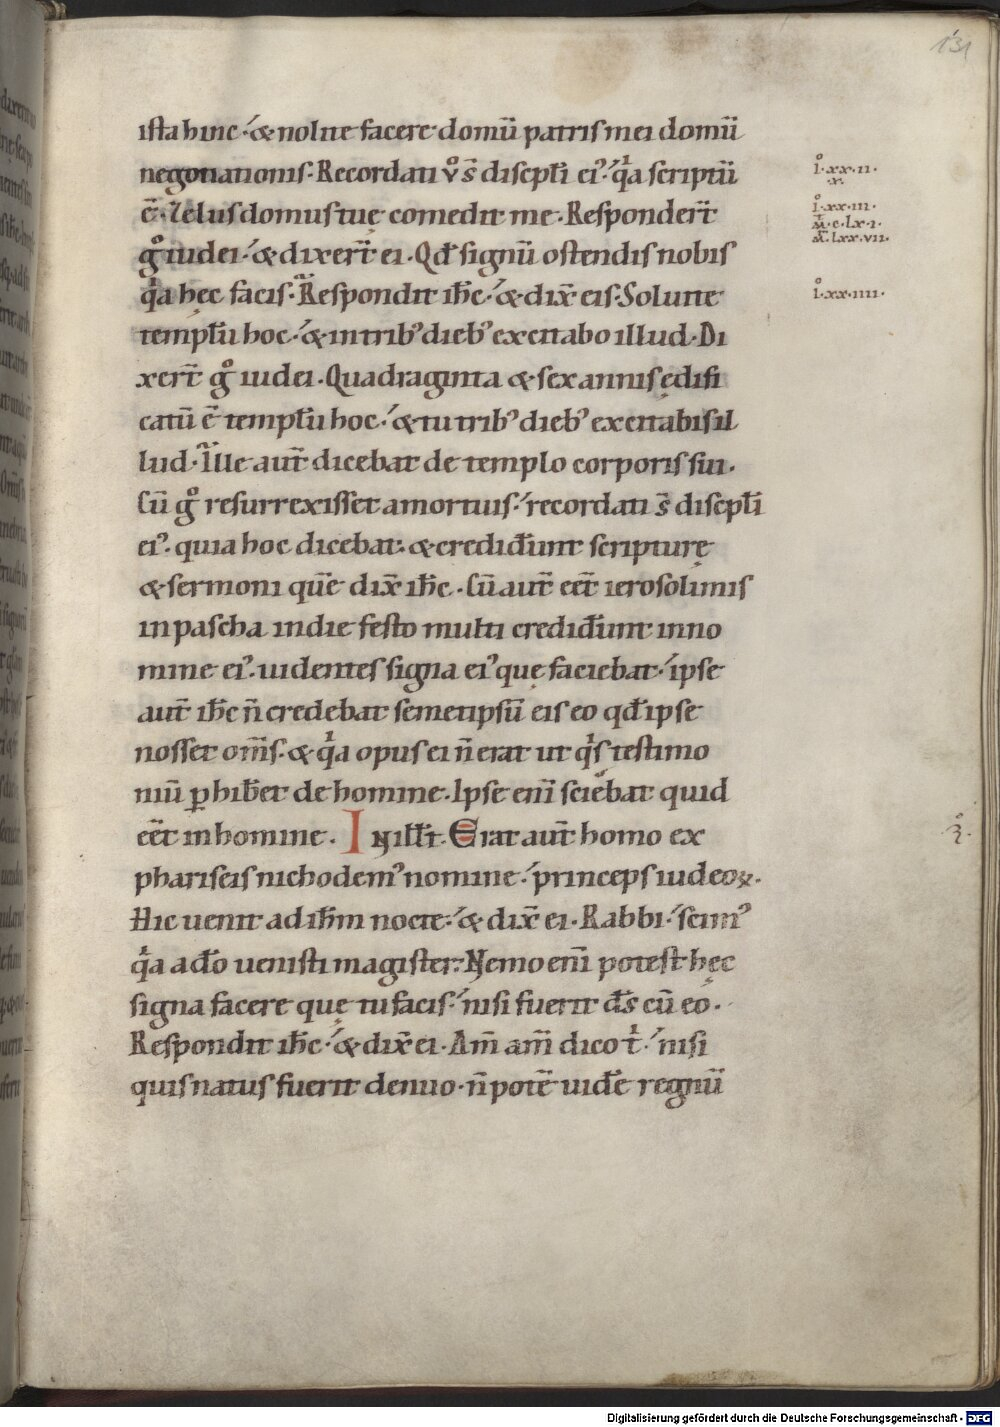 131
ista hinc. & nolite facere domū patris mei domū
negotiationis. Recordati v̊ s̄ discipĺi ei᾿. qͥa scriptū
ē. Zelus domus tuę comedit me. Responder̄t
gͦ iudei. & dixer̄t ei. Qđ signū ostendis nobis
qͥa hęc facis. Respondit ih̄c. & dix̄ eis. Soluite
templ̄u hoc. & in trib᾿ dieb᾿ excitabo illud. Di
xer̄t gͦ iudei. Quadraginta & sex annis ędifi
catū ē templ̄u hoc. & tu trib᾿ dieb᾿ excitabis il
lud. Ille aut̄ dicebat de templo corporis sui.
Cū gͦ resurrexisset a mortuis. recordati s̄ discipl̄i
ei᾿. quia hoc dicebat. & crediđunt scripturę
& sermoni quē dix̄ ih̄c. Cū aut̄ eēt ierosolimis
in pascha in die festo multi crediđunt in no
mine ei᾿. uidentes signa ei᾿ quę faciebat. ipse
aut̄ ih̄c n̄ credebat semetipsū eis eo qđ ipse
nosset om̄s. & qͥa opus ei n̄ erat ut qͥs testimo
niū ꝑhiƀet de homine. Ipse eni̅ sciebat quid
eēt in homine. In ill̄ t̄. Erat aut̄ homo ex
phariseis nichodem᾿ nomine. princeps iudeoꝝ.
Hic uenit ad ih̄m nocte. & dix̄ ei. Rabbi. scim᾿
qͥa a đo uenisti magister. Nemo eni̅ potest hęc
signa facere quę tu facis. nisi fuerit d̄s cū eo.
Respondit ih̄c. & dix̄ ei. Am̄ am̄ dico tͥ. nisi
quis natus fuerit denuo. n̄ potē uiđe regnū
I̊. xx. ii.
x.
I̊. xx. iii.
M̄. c. lx. i.
M̄. lxx. vii.
I̊. xx. iiii.
Digitalisierung gefördert durch die Deutsche Forschungsgemeinschaft - DFG